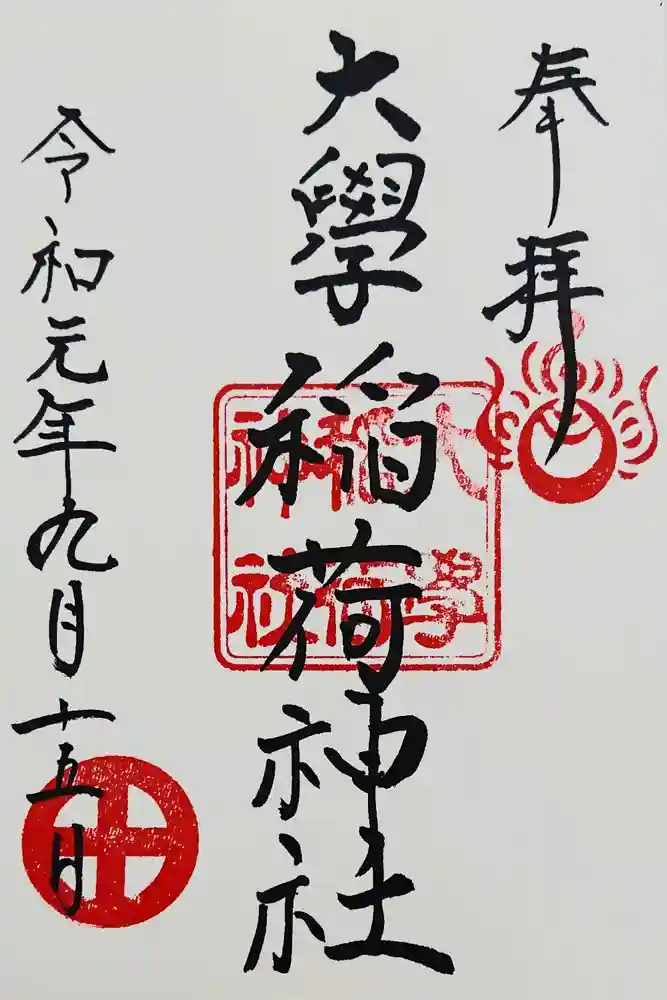 奉拝
大學稲荷神社
大学
稲荷
神社
令和元年九月十五日